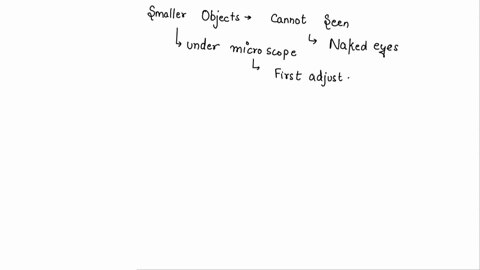 Smaller Objects → Cannot Seen
↳ Naked eyes
↳ under microscope
↳ First adjust.